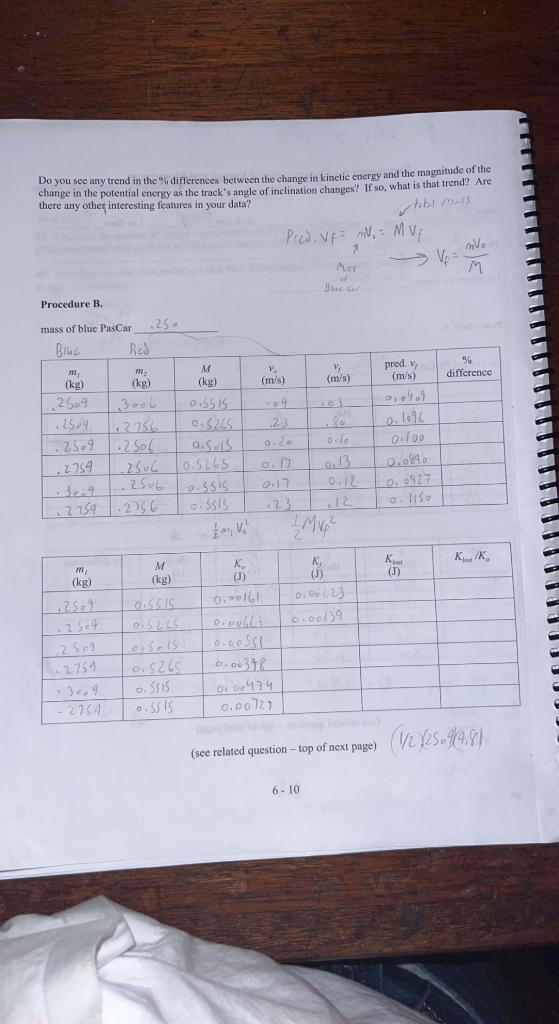 Do you see any trend in the % differences between the change in kinetic energy and the magnitude of the
change in the potential energy as the track's angle of inclination changes? If so, what is that trend? Are
there any other interesting features in your data?
total mass
Pred. Vf = mV₀ = M Vf
→ Vf = mV₀ / M
Mass
of
Blue car
Procedure B.
mass of blue PasCar .250
Blue Red
m₁ (kg) m₂ (kg) M (kg) v₀ (m/s) v_f (m/s) pred. v_f (m/s) % difference
.2509 .3006 0.5515 .09 .03 0.0409
.2509 .2756 0.5265 .23 .80 0.1096
.2509 .2506 0.5015 0.20 0.10 0.100
.2759 .2506 0.5265 0.17 0.13 0.0890
.3009 .2506 0.5515 0.17 0.12 0.0927
.2759 .2756 0.5515 .23 .12 0.1150
½ m₁ V₀² ½ M Vf²
m₁ (kg) M (kg) K₀ (J) K_f (J) K_lost (J) K_lost /K₀
.2509 0.5515 0.00161 0.00223
.2509 0.5265 0.00663 0.00139
.2509 0.5015 0.00551
.2759 0.5265 0.00398
.3009 0.5515 0.00434
.2759 0.5515 0.00729
(see related question – top of next page) (1/2)(2509)(9.81)
6 - 10